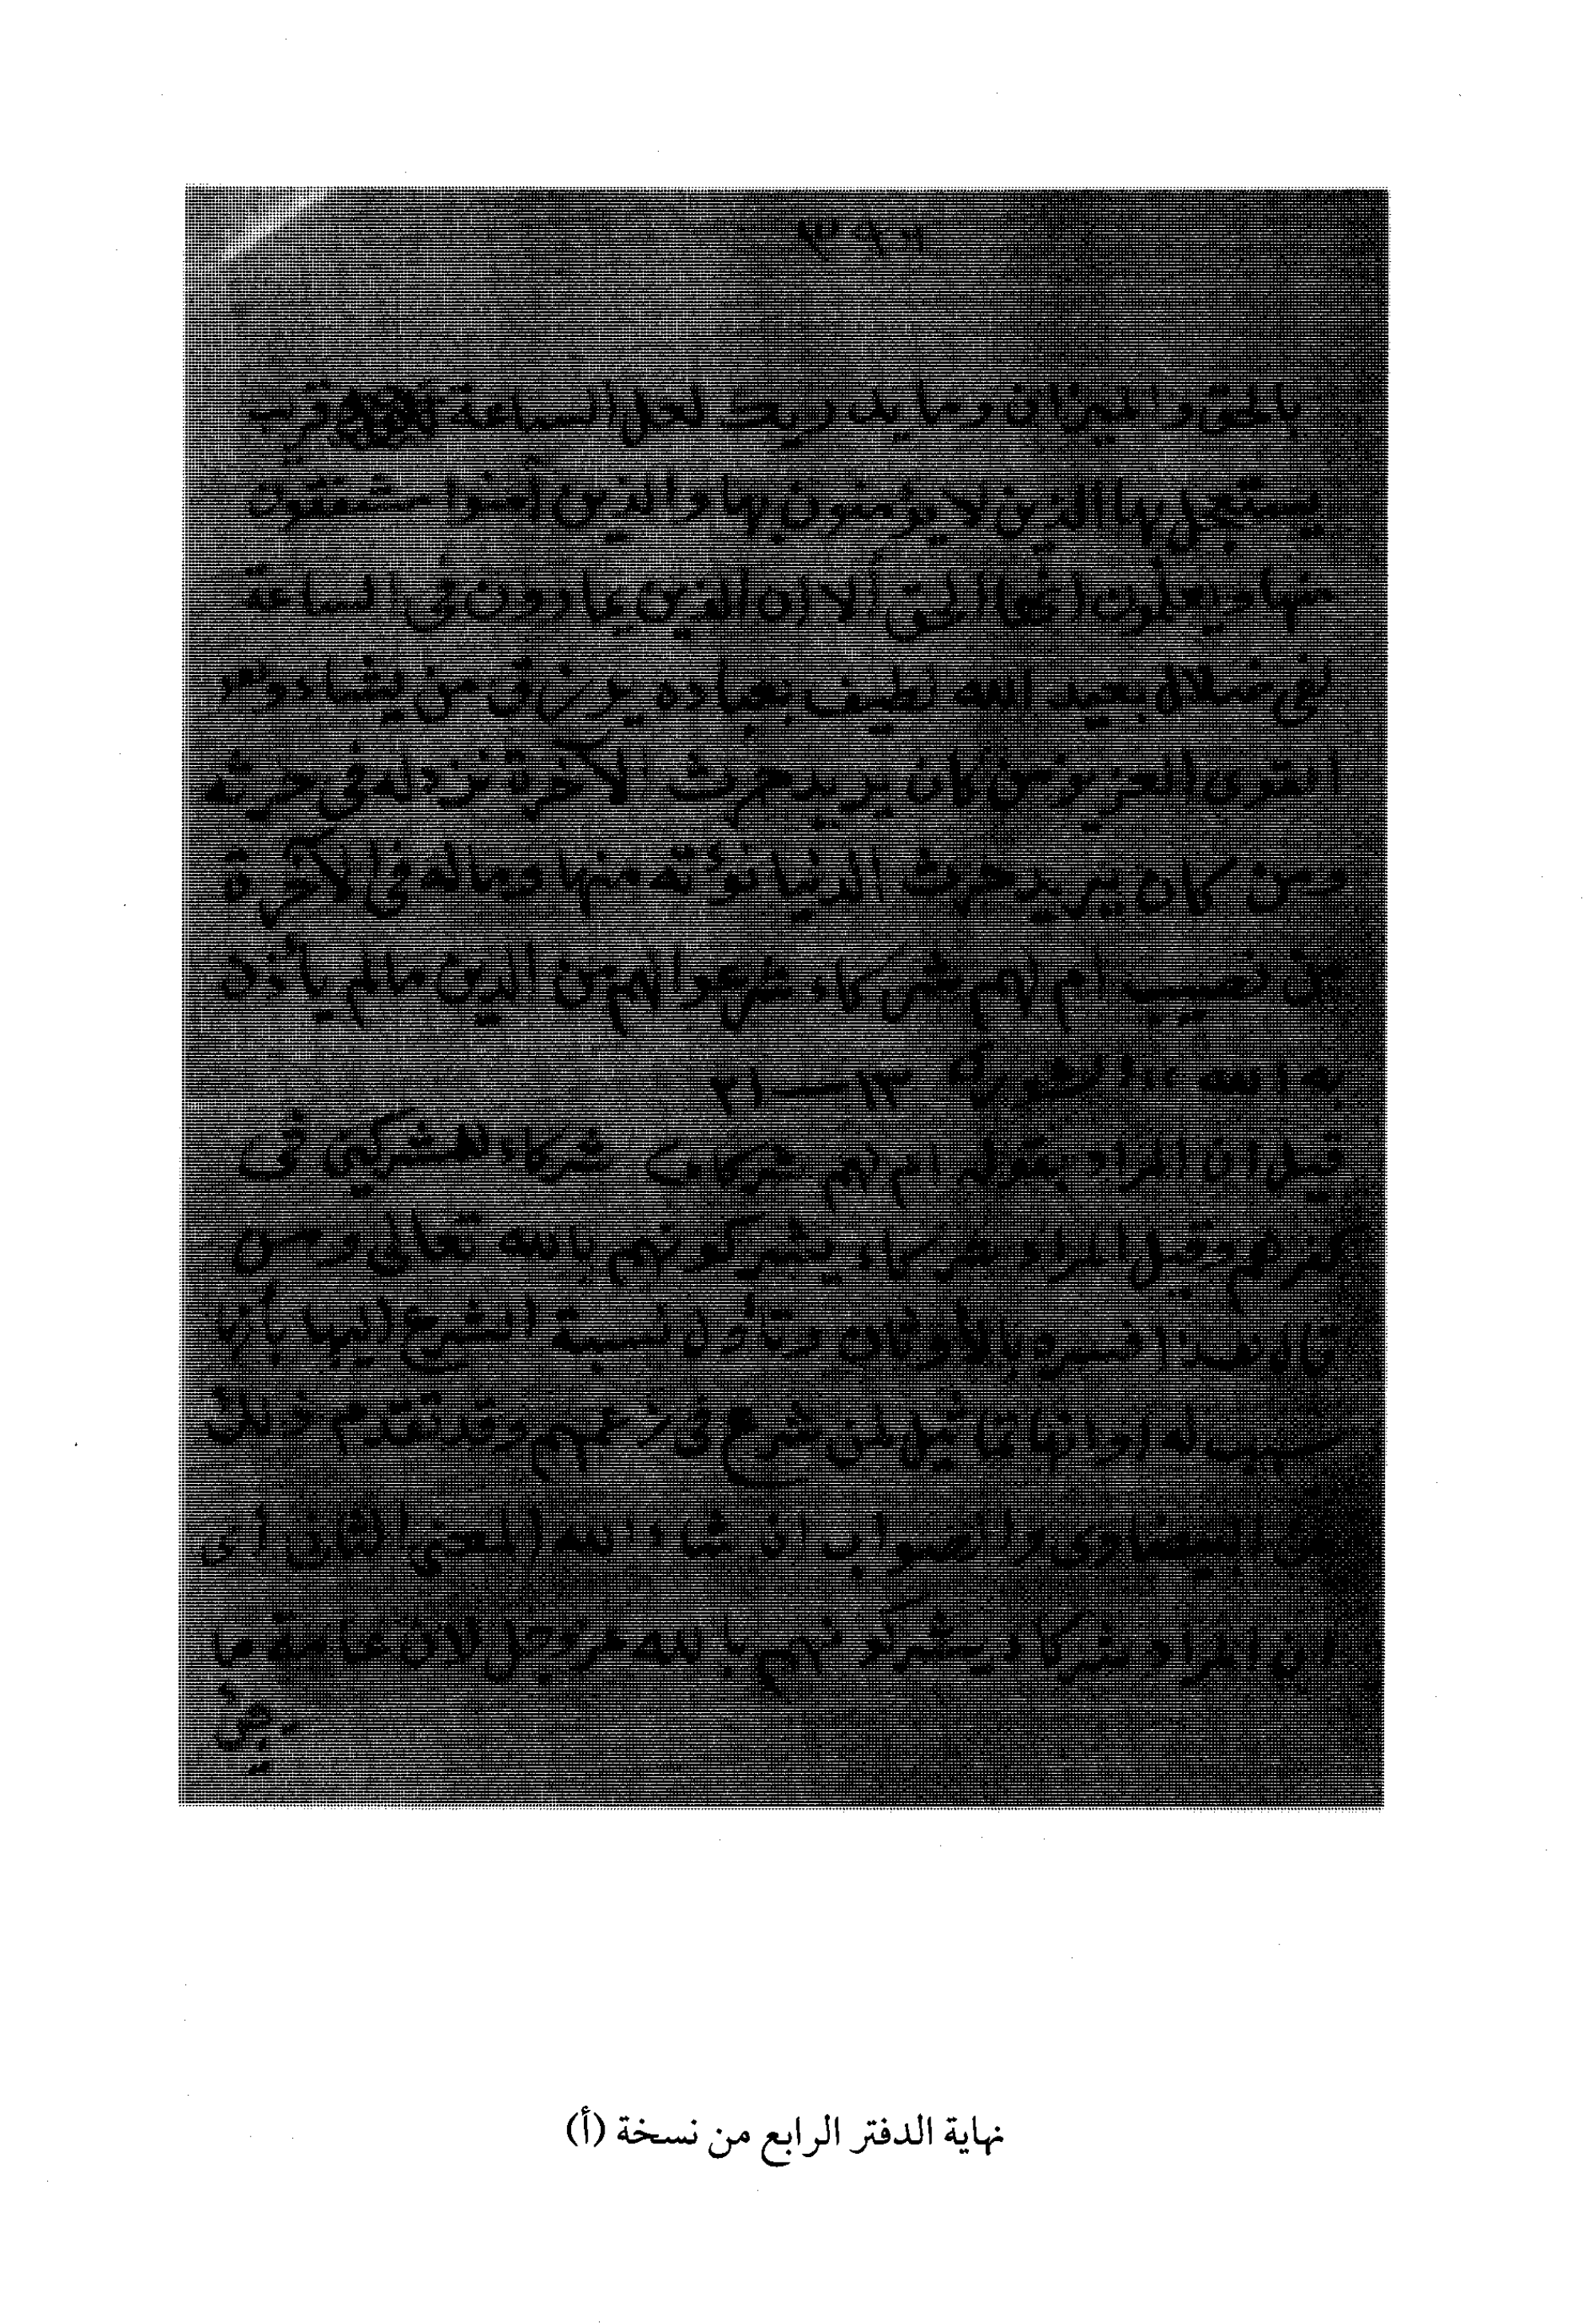 بالحق والميزان وما يدريك لعل الساعة قريب
يستعجل بها الذين لا يؤمنون بها والذين آمنوا مشفقون
منها ويعلمون أنها الحق ألا إن الذين يمارون في الساعة
لفي ضلال بعيد الله لطيف بعباده يرزق من يشاء وهو
القوى العزيز من كان يريد حرث الآخرة نزد له في حرثه
ومن كان يريد حرث الدنيا نؤته منها وماله في الآخرة
من نصيب أم لهم شركاء شرعوا لهم من الدين مالم يأذن
به الله ،، الشورى ١٣ — ٢١
قيل ان المراد بقوله ام لهم شركاء شركاء للمشركين في
كفرهم وقيل المراد شركاء يشركونهم بالله تعالى ومن
قال بهذا فسره بالأوثان وتأول نسبة الشرع إليها بأنها
سبب له او انها تماثيل لمن شرع في زعمهم وقد تقدم ذلك
عن البيضاوى والصواب ان شاء الله المعنى الثانى أى
ان المراد شركاء يشركونهم بالله عز وجل لان عامة ما
نهاية الدفتر الرابع من نسخة (أ)